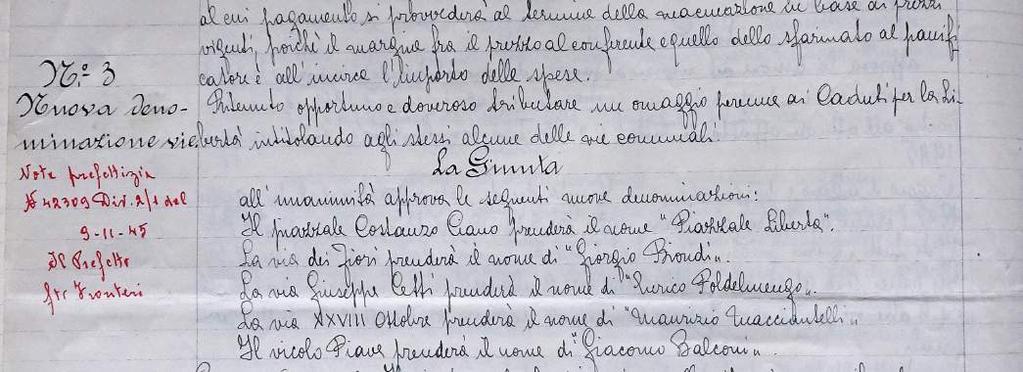 al cui pagamento si provvederà al termine della macinazione in base ai prezzi
vigenti, poichè il margine fra il prezzo al conferente e quello dello sfarinato al panifi-
catore è all'incirca l'importo delle spese.
N.° 3
Nuova deno-
minazione vie
Ritenuto opportuno e doveroso tributare un omaggio perenne ai Caduti per la Li-
bertà intitolando agli stessi alcune delle vie comunali.
La Giunta
Nota prefettizia
N 42309 Div. 2/1 del
9-11-45
Il Prefetto
fto Fronteri
all'unanimità approva le seguenti nuove denominazioni:
Il piazzale Costanzo Ciano prenderà il nome "Piazzale Libertà".
La via dei Fiori prenderà il nome di "Giorgio Biondi".
La via Giuseppe prenderà il nome di "Enrico Poldelmengo".
La via XXVIII Ottobre prenderà il nome di "Maurizio Macciantelli"
Il vicolo Piave prenderà il nome di "Giacomo Balconi".